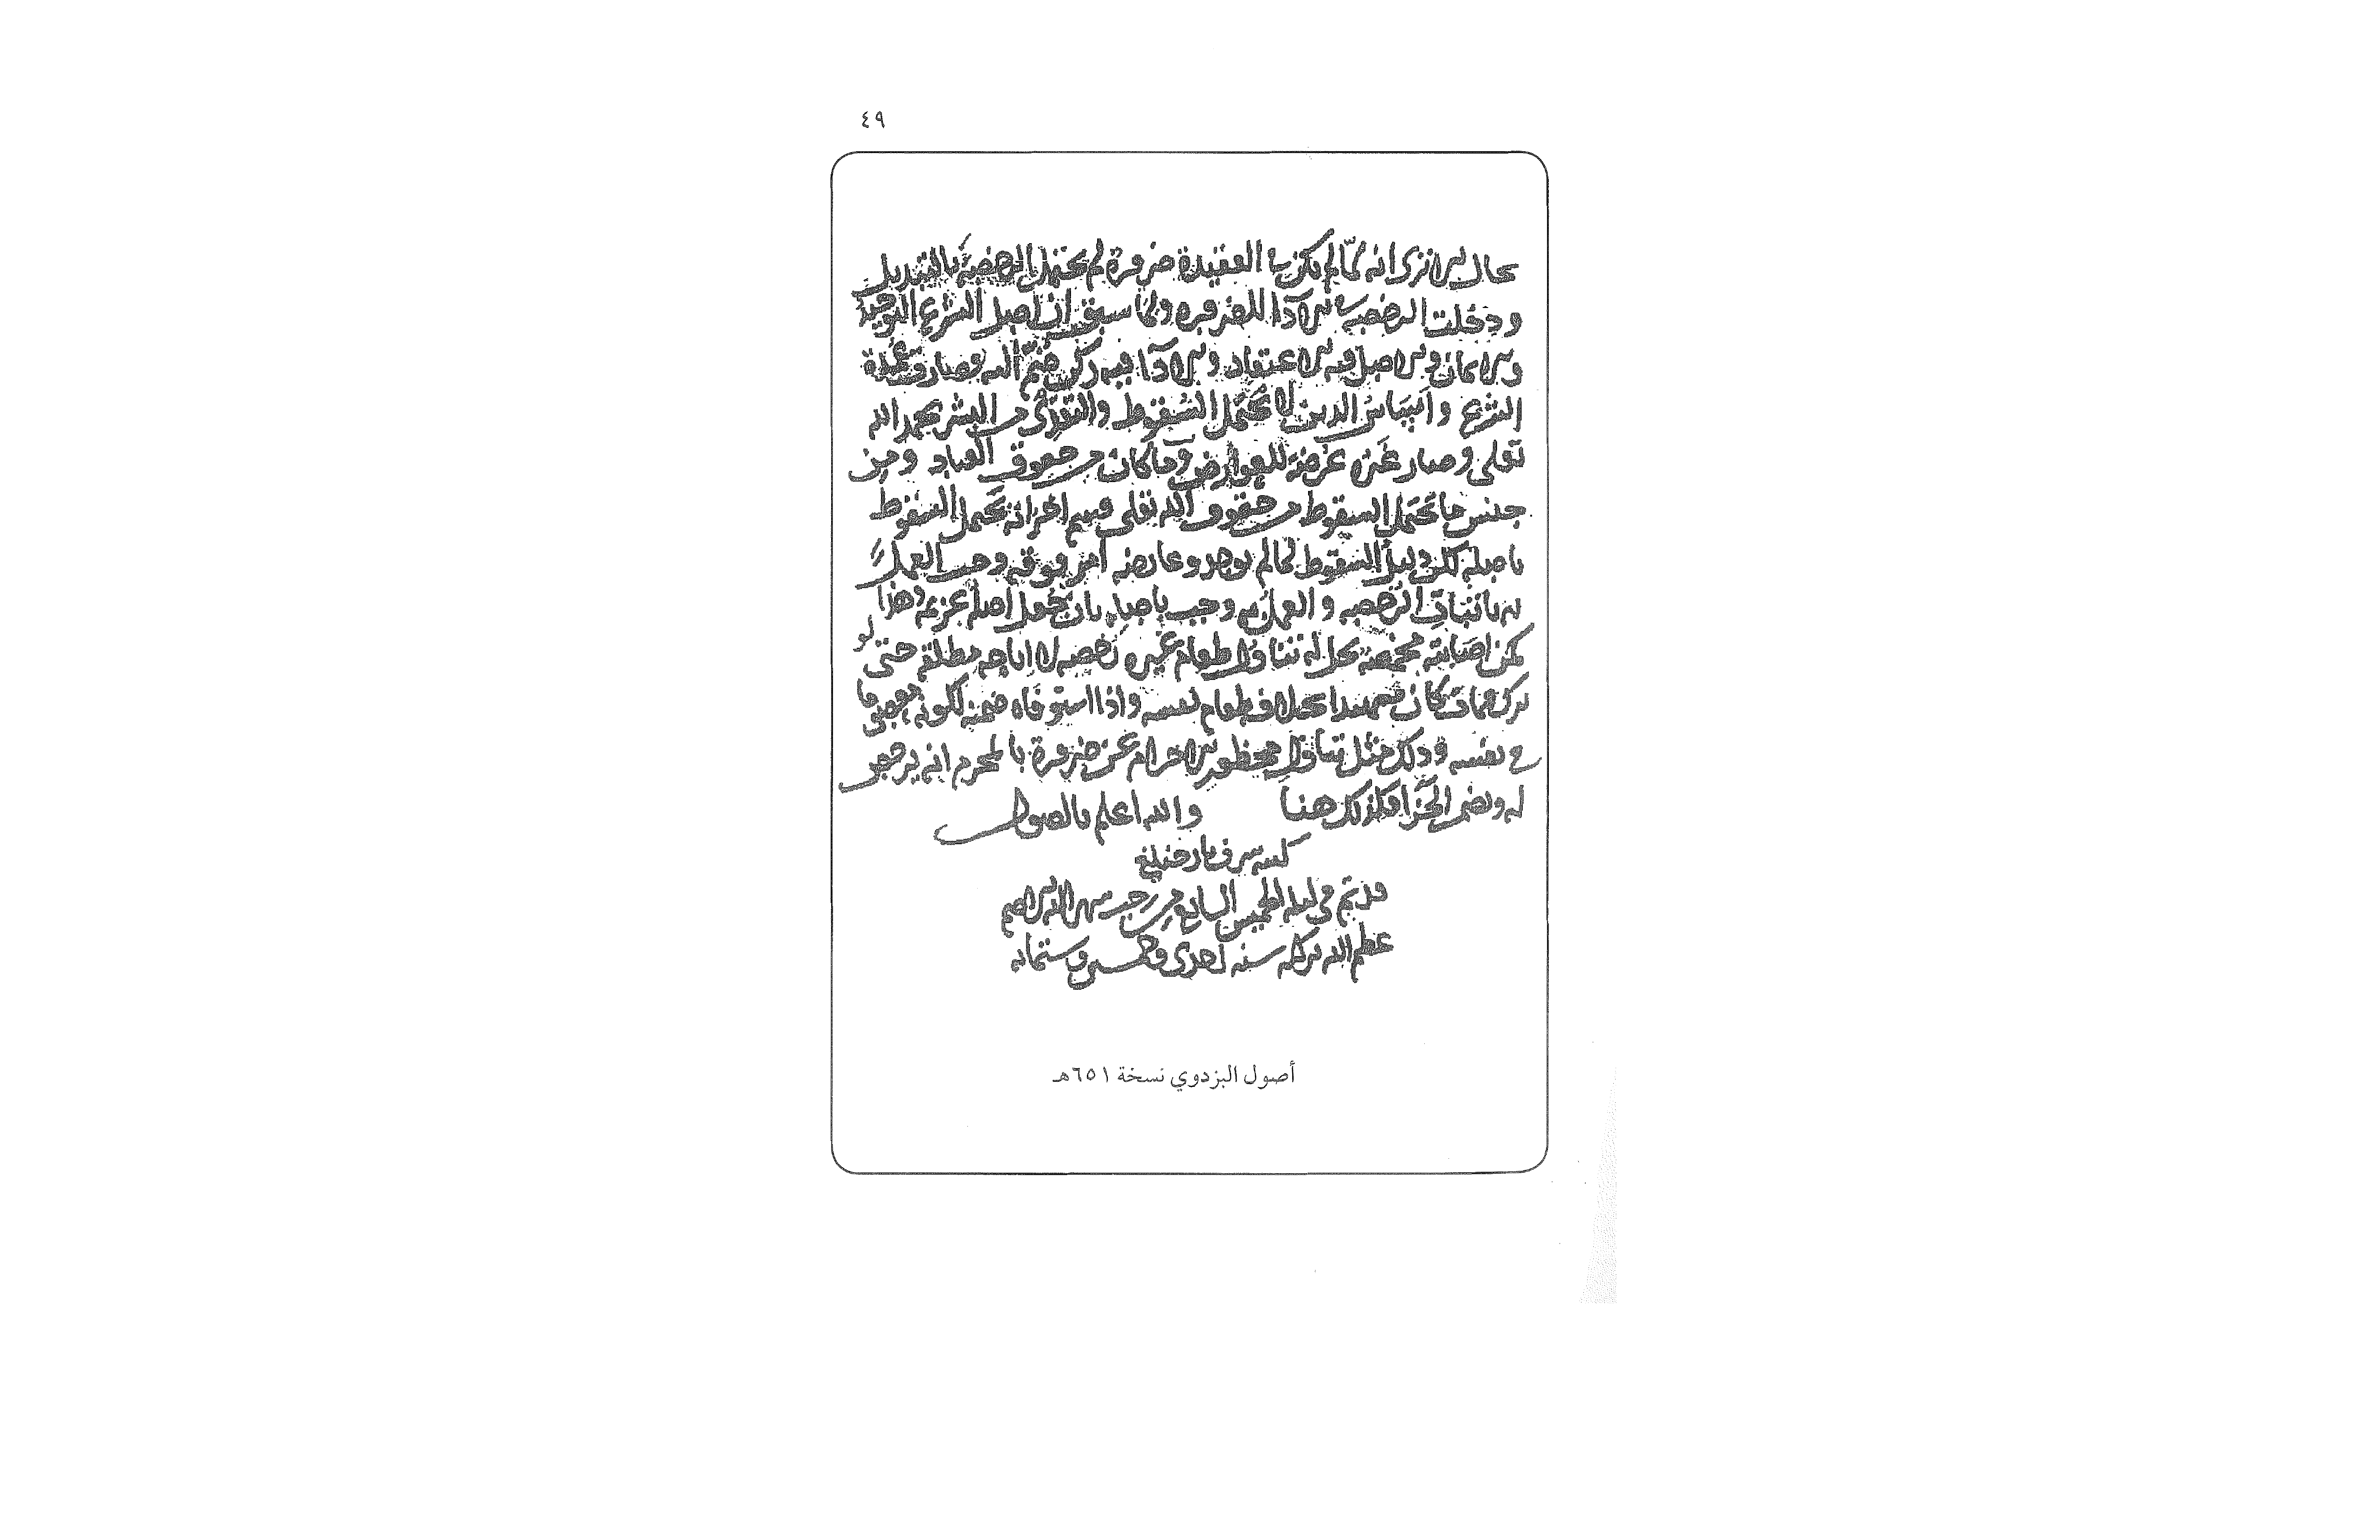 ٤٩
بحال الا ترى انه لما لم يكن في العقيدة ضرورة لم يحتمل الرخصة بالتبديل
ودخلت الرخصة في الاداء للضرورة ولما سبق ان اصل الشرع التوحيد
والايمان والاصل فيه الاعتقاد والاداء فيه ركن ضم اليه فصار عمدة
الشرع واساس الدين لا يحتمل السقوط والتعدي من البشر بحمد الله
تعلى وصار غيره عرضة للعوارض وما كان من حقوق العباد ومن
جنس ما يحتمل السقوط من حقوق الله تعلى قسم اخر انه يحتمل السقوط
باصله لكن دليل السقوط لما لم يوجد وعارضه امر فوقه وجب العمل
به باثبات الرخصة والعمل وجب باصله بان جعل اصله عزيمة وهذا
كمن اصابته مخمصة حل له تناول طعام غيره رخصة لا اباحة مطلقة حتى لو
ترك فمات كان شهيدا بخلاف طعام نفسه واذا استوفاه ضمنه لكونه معصوما
في نفسه وذلك مثل تناول محظور الاحرام عن ضرورة بالمحرم انه يرخص
له ويضمن الجزا فكذلك هنا والله اعلم بالصواب
قد تم في ليلة الخميس السابع من رجب شهر الله الاصم
عظم الله بركته سنة احدى وخمسين وستمائة
أصول البزدوي نسخة ٦٥١هـ